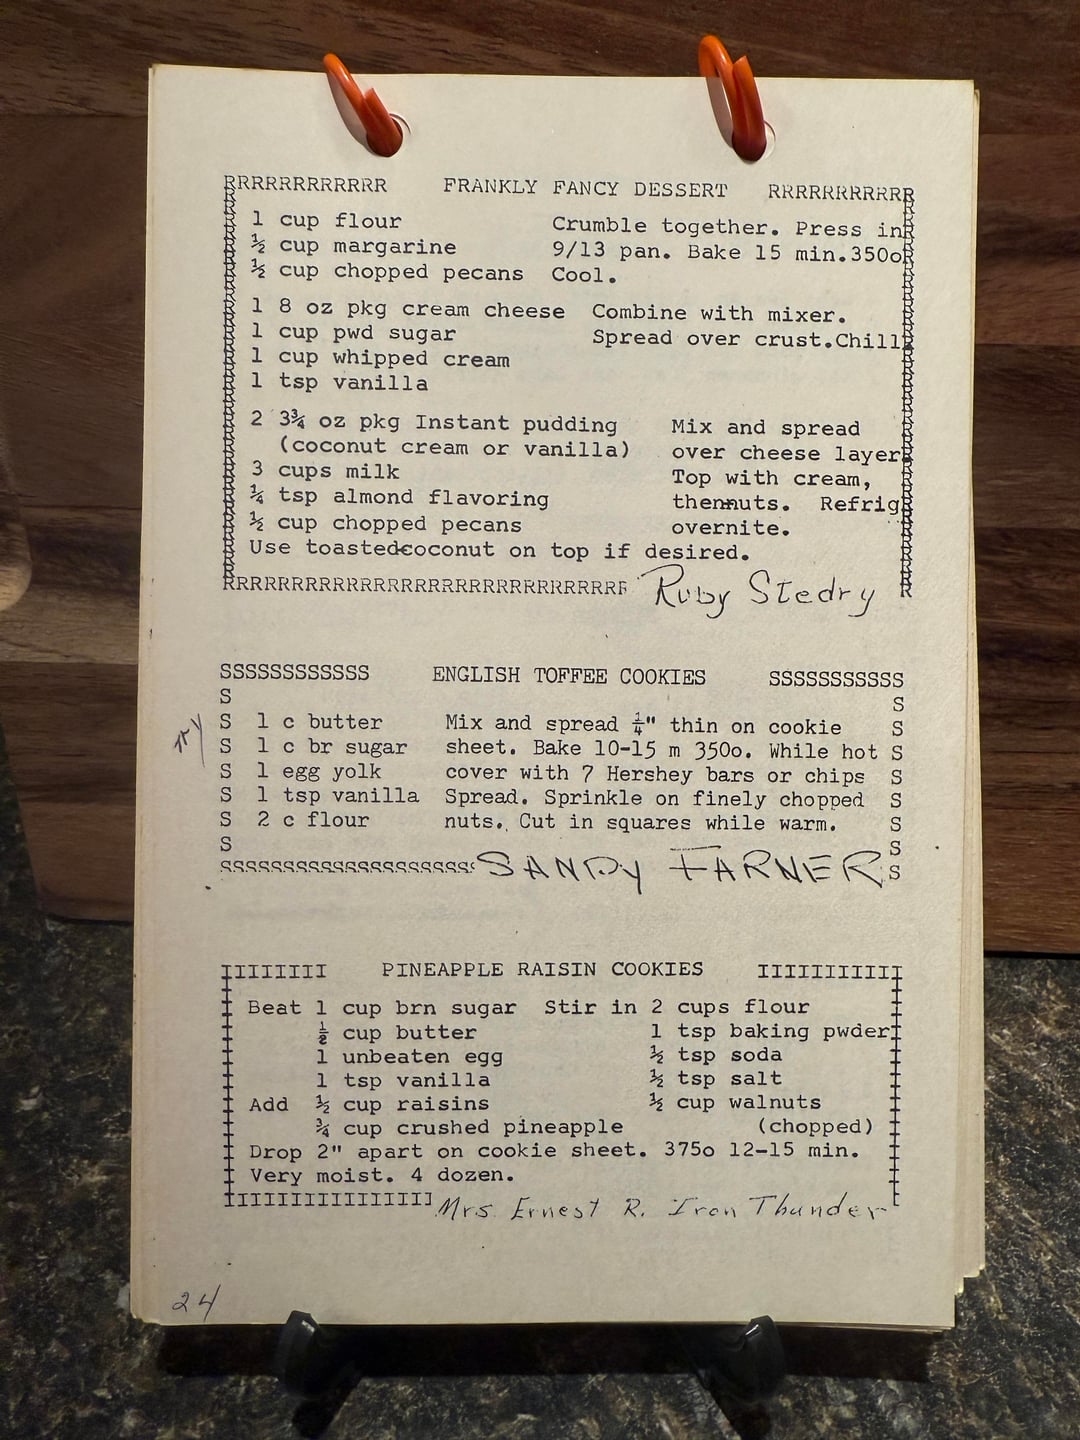 RRRRRRRRRRRR FRANKLY FANCY DESSERT RRRRRRRRRRR
1 cup flour Crumble together. Press in
½ cup margarine 9/13 pan. Bake 15 min.350o
½ cup chopped pecans Cool.
1 8 oz pkg cream cheese Combine with mixer.
1 cup pwd sugar Spread over crust.Chill
1 cup whipped cream
1 tsp vanilla
2 3¾ oz pkg Instant pudding Mix and spread
(coconut cream or vanilla) over cheese layer
3 cups milk Top with cream,
¼ tsp almond flavoring then nuts. Refrig
½ cup chopped pecans overnite.
Use toasted coconut on top if desired.
RRRRRRRRRRRRRRRRRRRRRRRRRRRRR Ruby Stedry
SSSSSSSSSSSS ENGLISH TOFFEE COOKIES SSSSSSSSSSS
S S
try S 1 c butter Mix and spread ¼" thin on cookie S
S 1 c br sugar sheet. Bake 10-15 m 350o. While hot S
S 1 egg yolk cover with 7 Hershey bars or chips S
S 1 tsp vanilla Spread. Sprinkle on finely chopped S
S 2 c flour nuts. Cut in squares while warm. S
S S
SSSSSSSSSSSSSSSSSSSS SANDY FARNER S
IIIIIIII PINEAPPLE RAISIN COOKIES IIIIIIIIIII
Beat 1 cup brn sugar Stir in 2 cups flour
½ cup butter 1 tsp baking pwder
1 unbeaten egg ½ tsp soda
1 tsp vanilla ½ tsp salt
Add ½ cup raisins ½ cup walnuts
¾ cup crushed pineapple (chopped)
Drop 2" apart on cookie sheet. 375o 12-15 min.
Very moist. 4 dozen.
IIIIIIIIIIIIIIII Mrs Ernest R. Iron Thunder
24